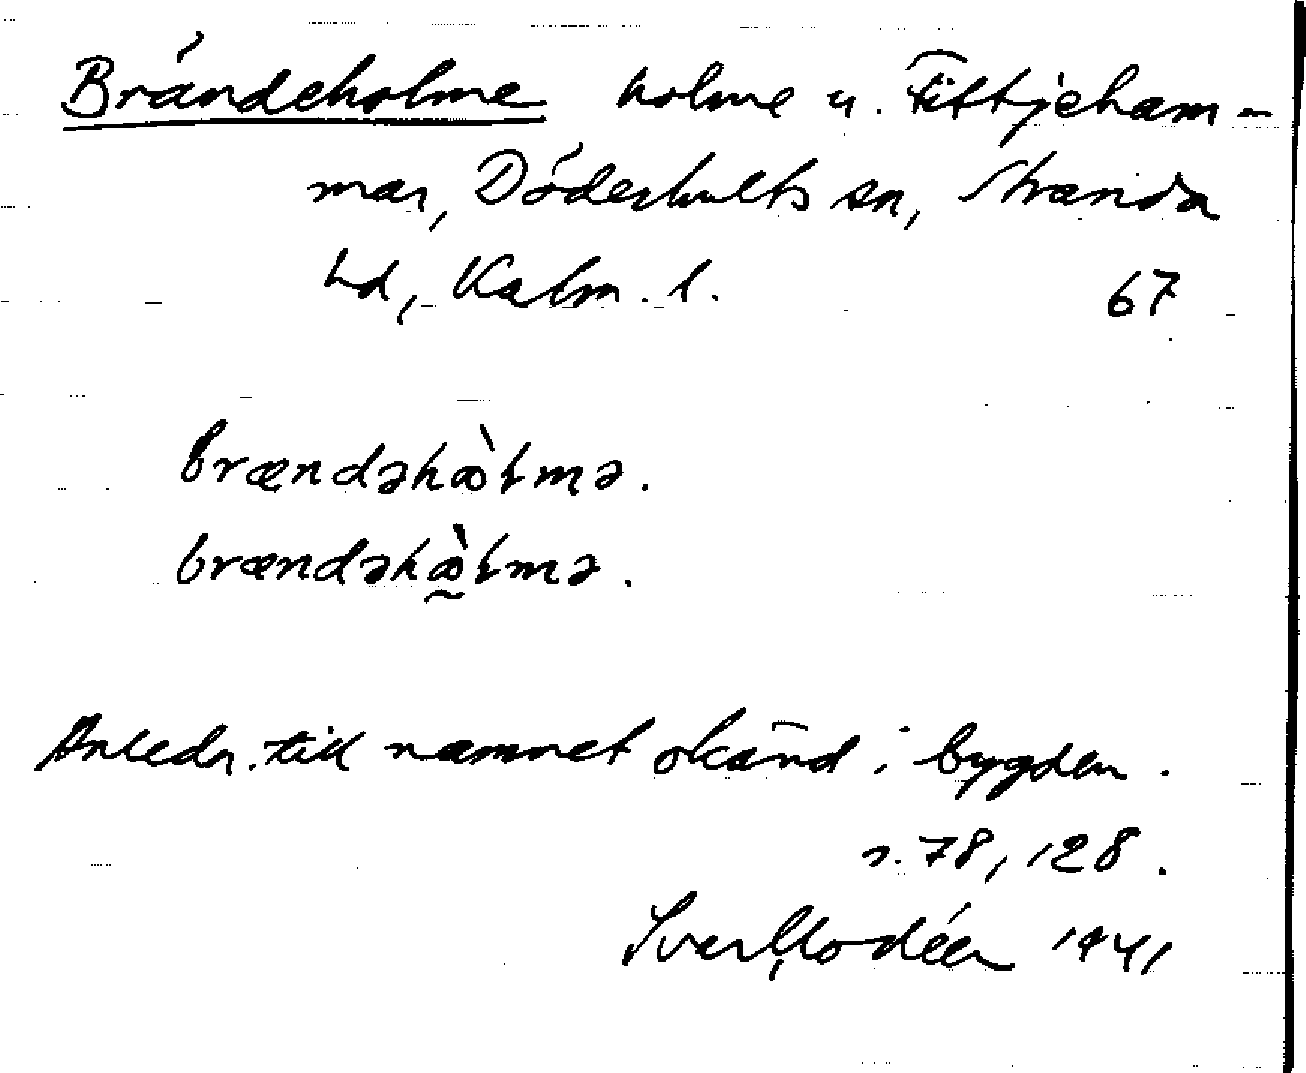 Brändeholme holme u. Fittjeham-
mar, Döderhults sn, Stranda
hd, Kalm. l. 67
brændəhꝏ̀ɫmə.
brændəhꝏ̰̀ɫmə.
Anledn. till namnet okänd i bygden.
s. 78, 128.
Ivar Modéer 1941